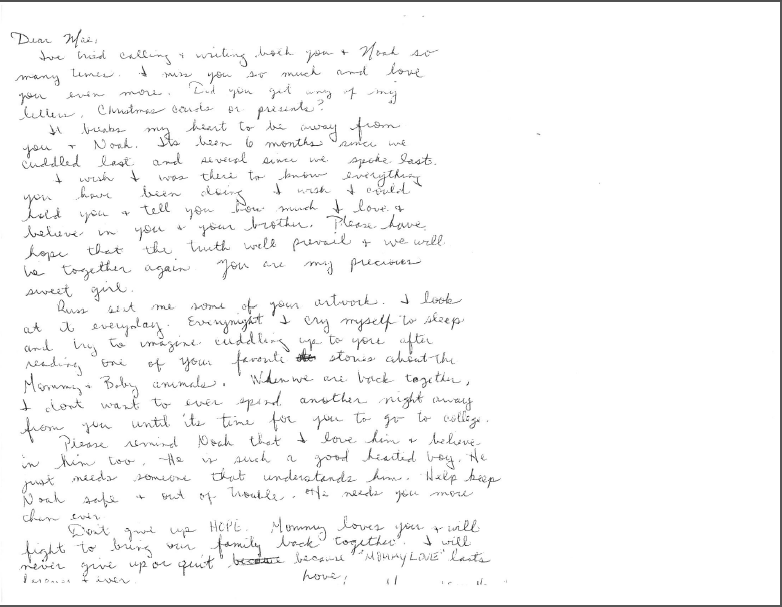 Dear Mae,
I've tried calling + writing both you + Noah so
many times. I miss you so much and love
you even more. Did you get any of my
letters, Christmas cards or presents?
It breaks my heart to be away from
you + Noah. Its been 6 months since we
cuddled last and several since we spoke last.
I wish I was there to know everything
you have been doing I wish I could
hold you + tell you how much I love +
believe in you + your brother. Please have
hope that the truth will prevail + we will
be together again You are my precious
sweet girl.
Russ sent me some of your artwork. I look
at it everyday. Everynight I cry myself to sleep
and try to imagine cuddling up to you after
reading one of your favorite stories about the
Mommy + Baby animals. When we are back together,
I dont want to ever spend another night away
from you until its time for you to go to college.
Please remind Noah that I love him + believe
in him too. He is such a good hearted boy. He
just needs someone that understands him. Help keep
Noah safe + out of trouble. He needs you more
than ever
Don't give up HOPE. Mommy loves you + will
fight to bring our family back together. I will
never give up or quit because because "MOMMY LOVE" lasts
forever + ever.
Love,